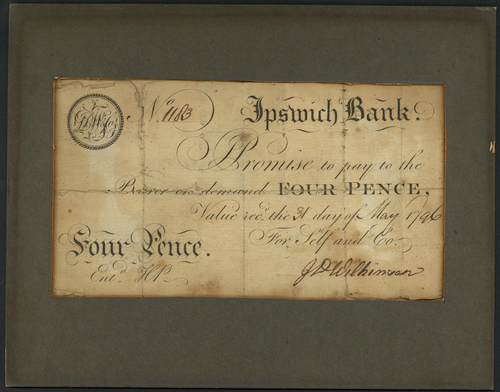 No. 1183 Ipswich Bank.
I Promise to pay to the
Bearer on demand FOUR PENCE,
Value recd. the 31 day of May 1796
Four Pence. For Self and Co.
Entd. HP J D Wilkinson